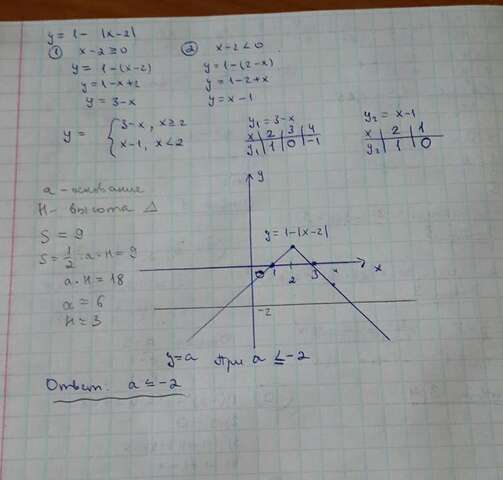 y = 1 - |x-2|
① x-2≥0
y = 1-(x-2)
y = 1-x+2
y = 3-x
② x-2<0
y = 1-(2-x)
y = 1-2+x
y = x-1
y = { 3-x, x≥2
x-1, x<2
y₁ = 3-x
x | 2 | 3 | 4
y₁ | 1 | 0 | -1
y₂ = x-1
x | 2 | 1
y₂ | 1 | 0
a - основание
H - высота Δ
S = 9
S = 1/2 · a · H = 9
a · H = 18
a = 6
H = 3
y
y = 1-|x-2|
0 1 2 3 x
-2
y=a При a ≤ -2
Ответ. a ≤ -2